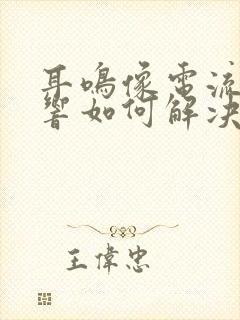 耳鳴像電流
響如何解決
王偉忠